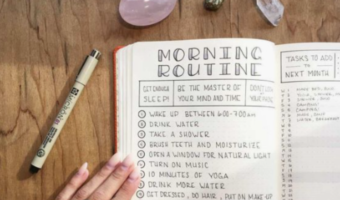 MORNING
ROUTINE
GET ENOUGH
SLEEP!
BE THE MASTER OF
YOUR MIND AND TIME
WAKE UP BETWEEN 6:00-7:00AM
DRINK WATER
TAKE A SHOWER
BRUSH TEETH AND MOISTURIZE
OPEN A WINDOW FOR NATURAL LIGHT
TURN ON MUSIC
10 MINUTES OF YOGA
DRINK MORE WATER
GET DRESSED, DO HAIR, PUT ON MAKE UP
TASKS TO ADD
TO
NEXT MONTH